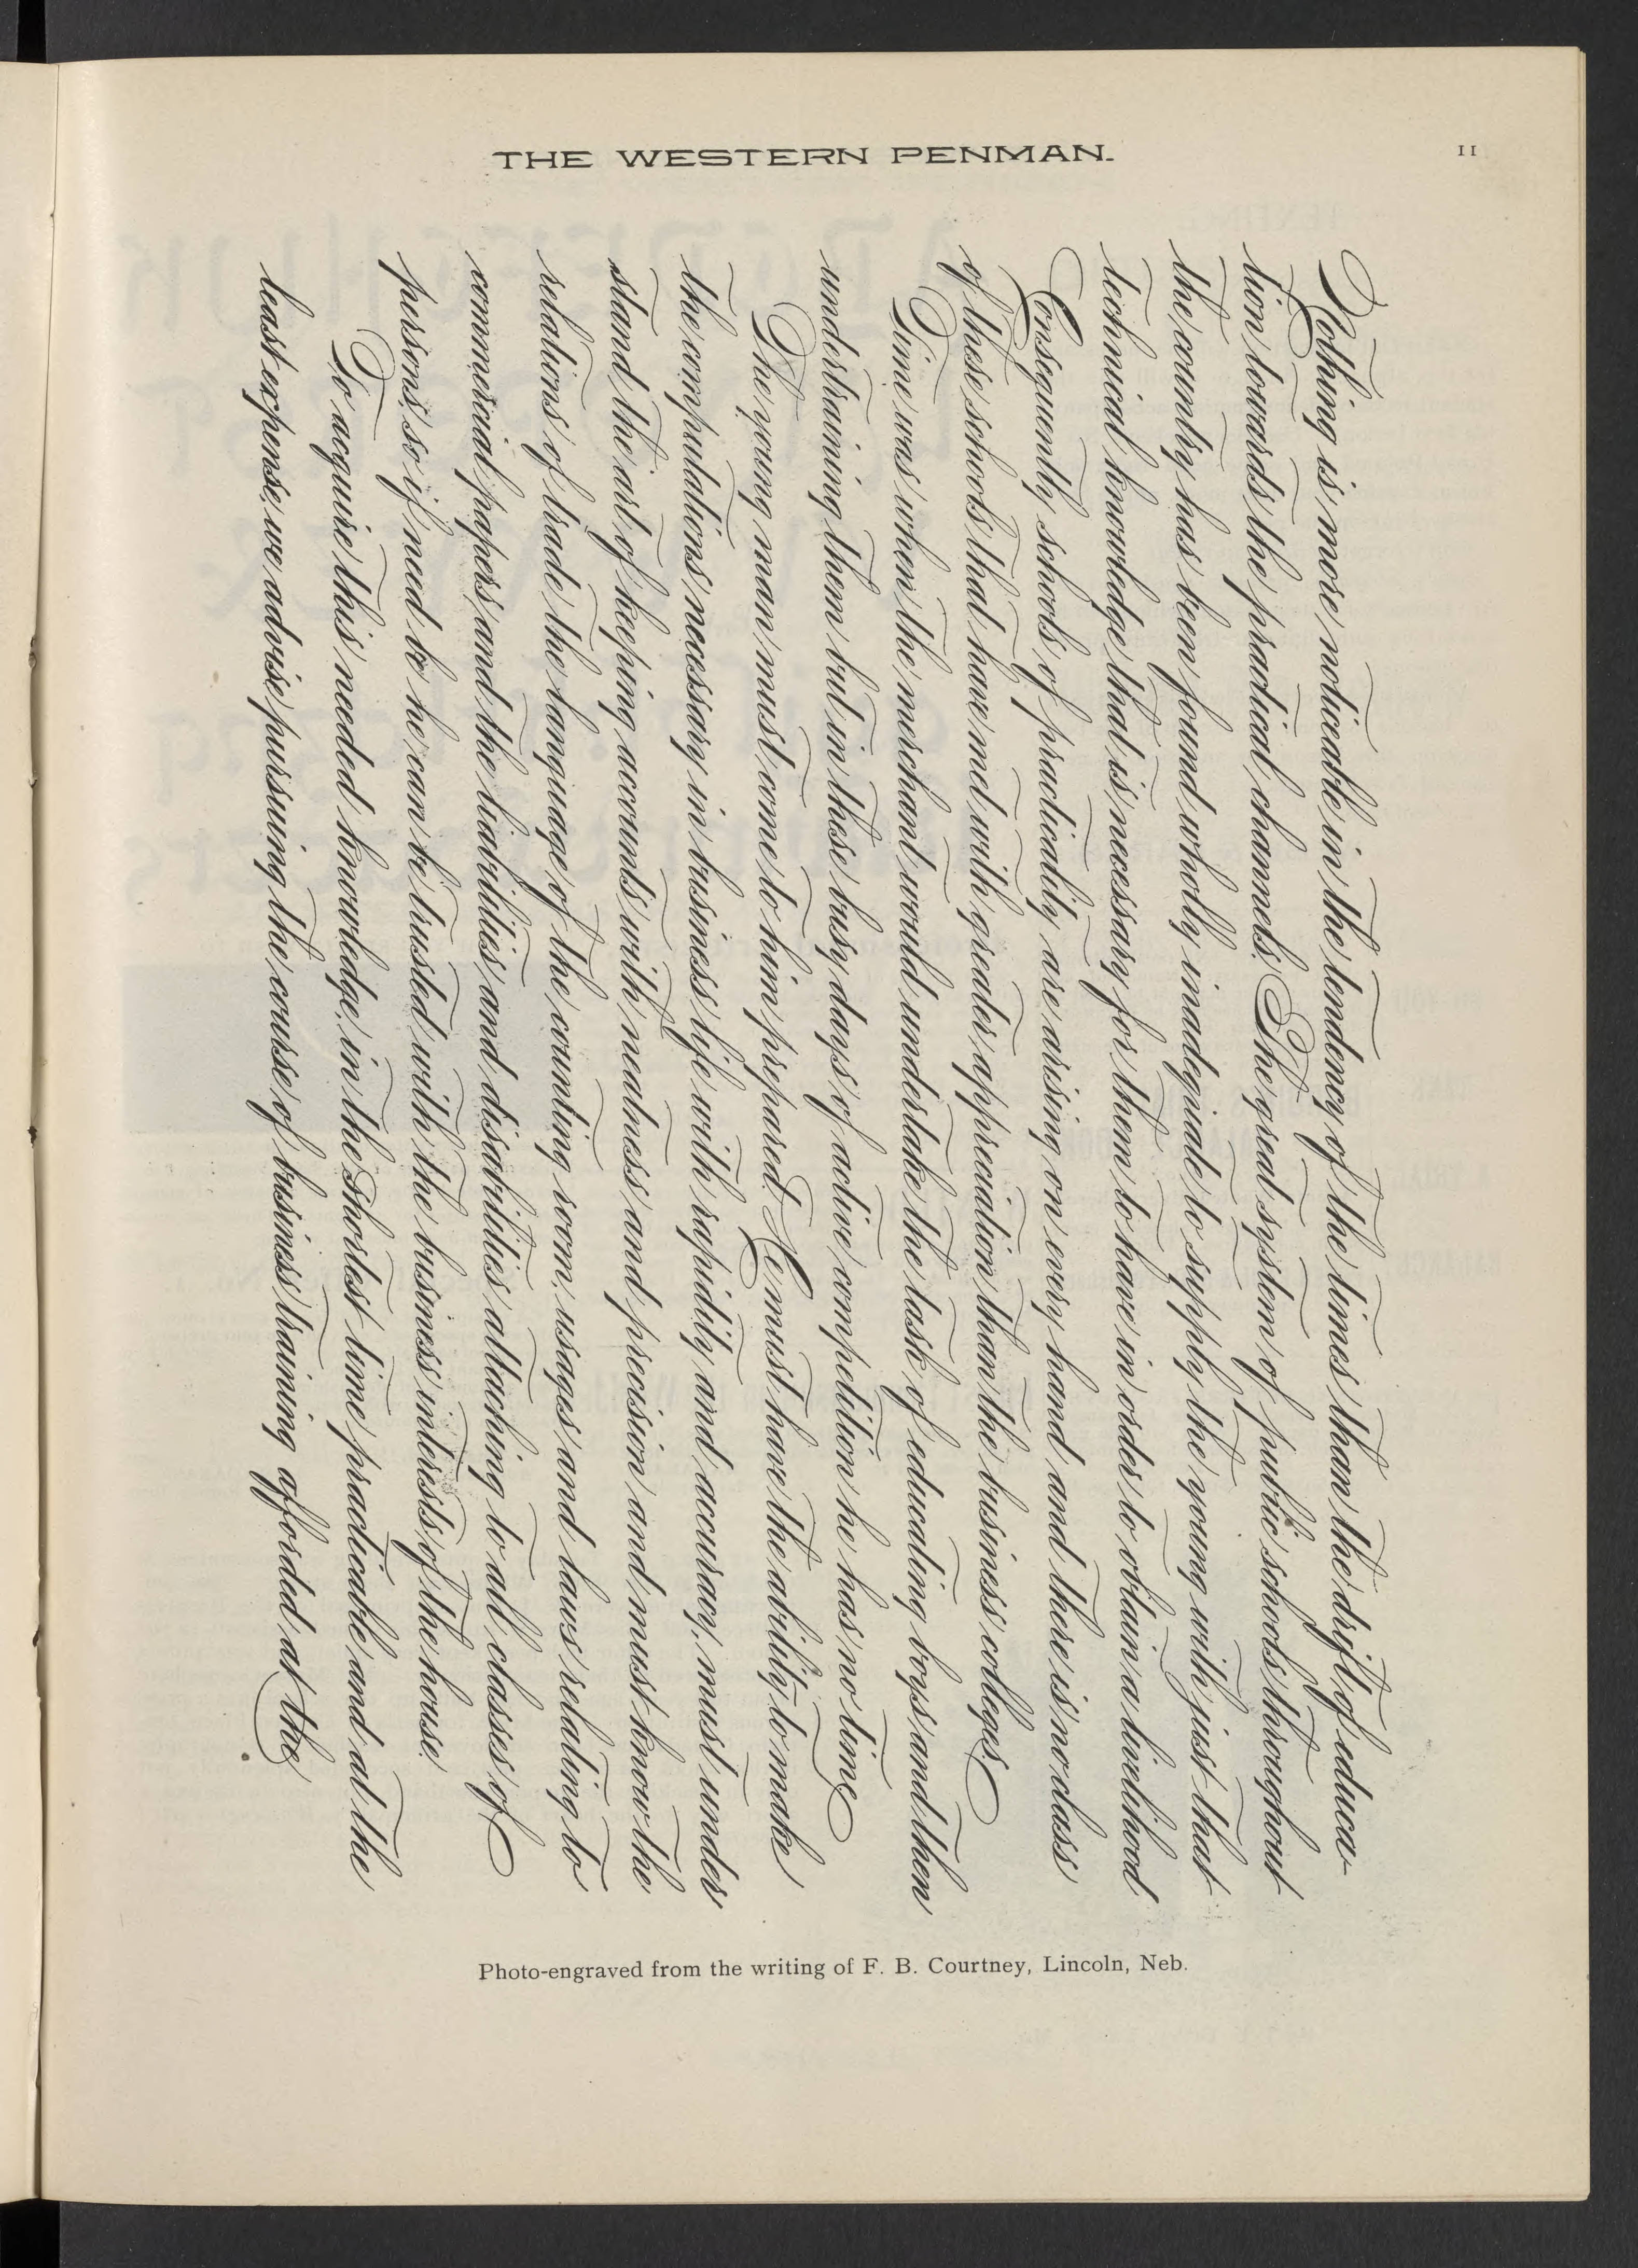 THE WESTERN PENMAN.
11
Nothing is more noticeable in the tendency of the times than the drift of educa-
tion towards the practical channels. The great system of public schools throughout
the country has been found wholly inadequate to supply the young with just that
technical knowledge that is necessary for them to have in order to obtain a livelihood
Consequently schools of practicality are arising on every hand and there is no class
of these schools that have met with greater appreciation than the business colleges
Time was when the merchant would undertake the task of educating boys and then
undertraining them but in these busy days of active competition he has no time
The young man must come to him prepared. He must have the ability to make
the computations necessary in business life with rapidity and accuracy, must under
stand the art of keeping accounts with neatness and precision and must know the
relations of trade, the language of the counting room, usages and laws relating to
commercial papers and the liabilities and disabilities attaching to all classes of
persons, so if need to he can be trusted with the business interests of the house.
To acquire this needed knowledge, in the shortest time practicable and at the
least expense, we advise pursuing the course of business training afforded at the
Photo-engraved from the writing of F. B. Courtney, Lincoln, Neb.